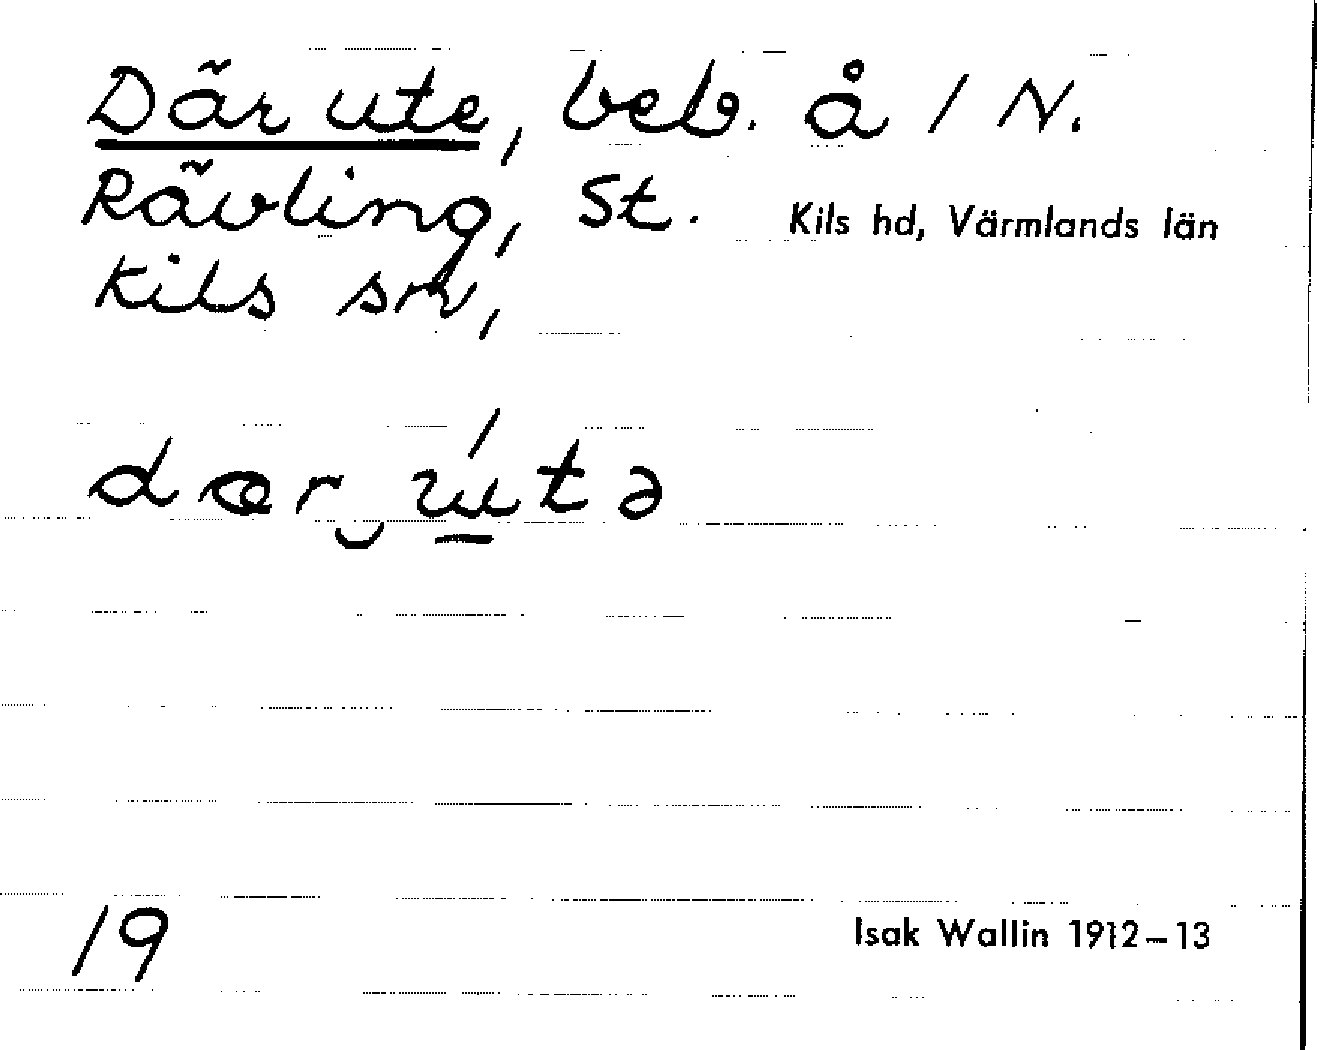 Där ute, beb. å 1 N.
Rävling, St. Kils hd, Värmlands län
Kils sn,
dær‿ùtə
19
Isak Wallin 1912–13